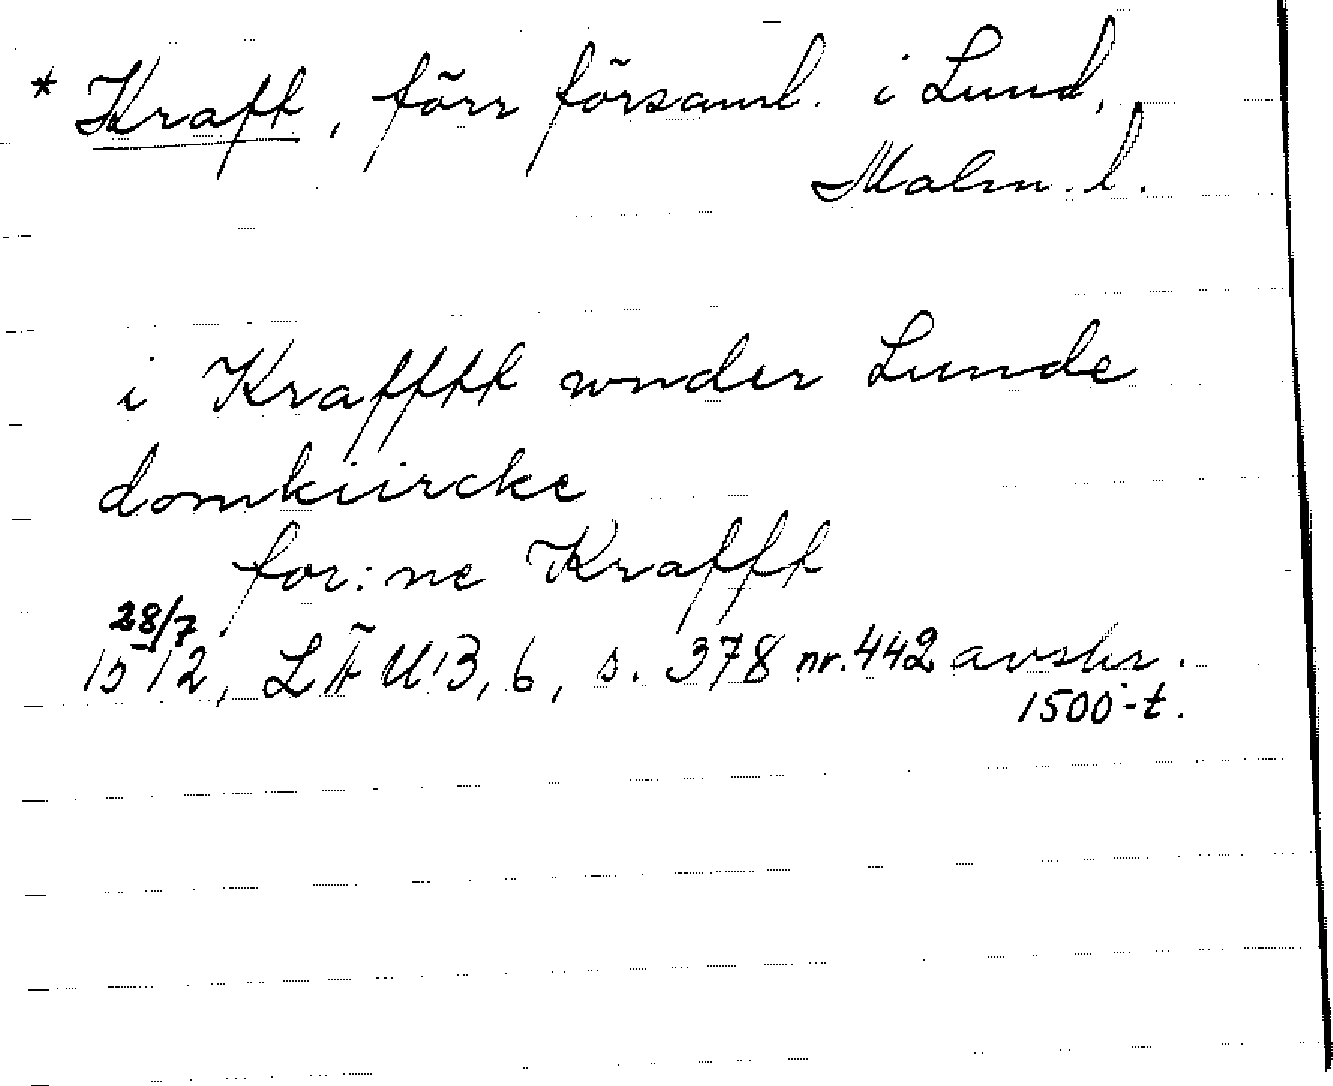 * Kraft, förr församl. i Lund,
Malm. l.
i Kraffttt wnder Lunde
domkiircke
for:ne Krafft
28/7
1512, LÄUB, 6, s. 378 nr. 442 avskr.
1500-t.